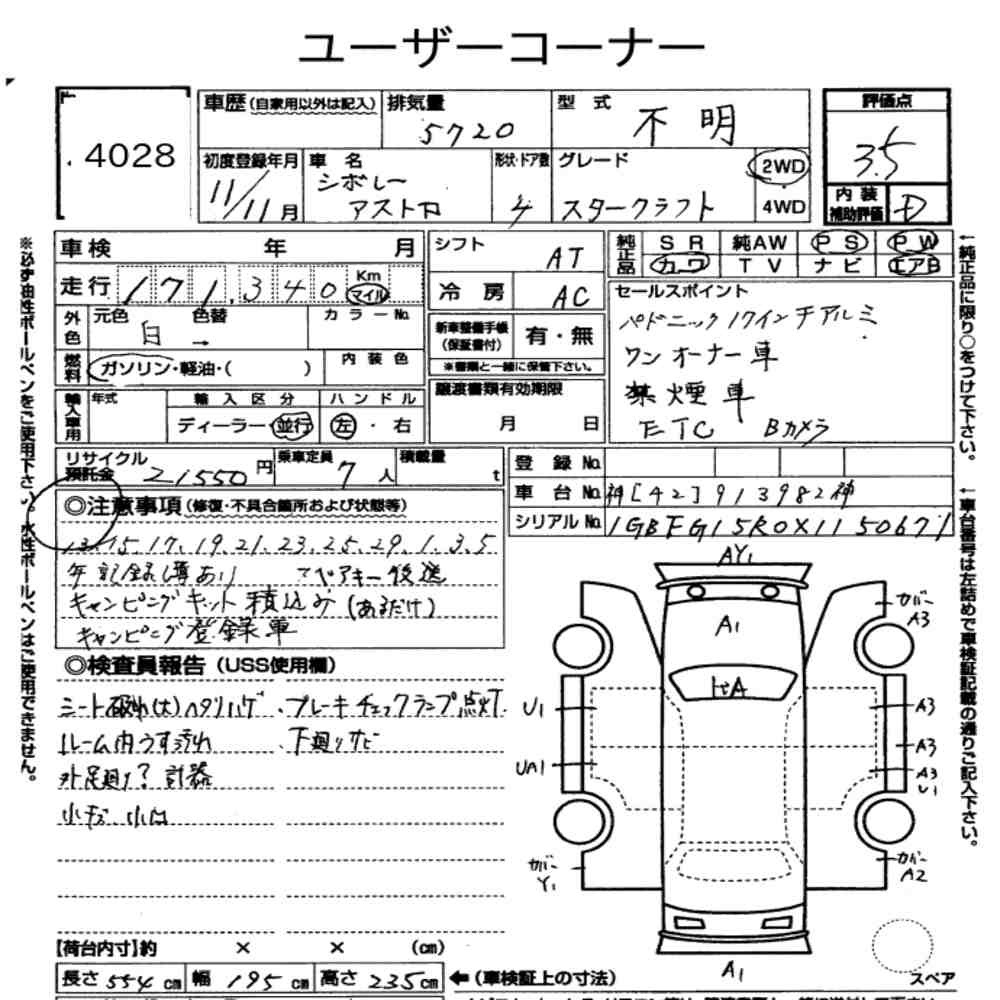 ユーザーコーナー
4028
車歴 (自家用以外は記入)
排気量 5720
型式 不明
評価点 3.5
初度登録年月 11/11月
車名 シボレー アストロ
形状・ドア数 4
グレード スタークラフト
2WD
4WD
内装補助評価 D
車検 年 月
シフト AT
純正品 SR 純AW PS PW
カワ TV ナビ エアB
走行 171,340 Km マイル
冷房 AC
セールスポイント
17インチアルミ
ワンオーナー車
禁煙車
ETC Bカメラ
外色 元色 白 色替 → カラーNo.
新車整備手帳(保証書付) 有・無
※書類と一緒に保管下さい。
燃料 ガソリン・軽油・( ) 内装色
譲渡書類有効期限
月 日
輸入車用 年式 輸入区分 ハンドル
ディーラー・並行 左・右
リサイクル預託金 21550円 乗車定員 7人 積載量 t
登録No.
車台No. 神[42]913982神
シリアルNo. 1GBFG15R0X1150671
◎注意事項 (修復・不具合箇所および状態等)
13. 15. 17. 19. 21. 23. 25. 29. 1. 3. 5
年記録簿あり スペアキー後送
キャンピングキット積込み(あるだけ)
キャンピング登録車
◎検査員報告 (USS使用欄)
シート破れ(大) ブレーキチェックランプ点灯
ルーム内うす汚れ 下廻りサビ
外足廻り? 計器
小キズ 小凹
AY1
A1
カバー A3
U1
A3
A3
UA1
A3
U1
カバー Y1
カバー A2
A1
スペア
【荷台内寸】約 × × (cm)
長さ 554 cm 幅 195 cm 高さ 235 cm ←(車検証上の寸法)
※必ず油性ボールペンをご使用下さい。水性ボールペンはご使用できません。
←純正品に限り○をつけて下さい。
←車台番号は左詰めで車検証記載の通りご記入下さい。